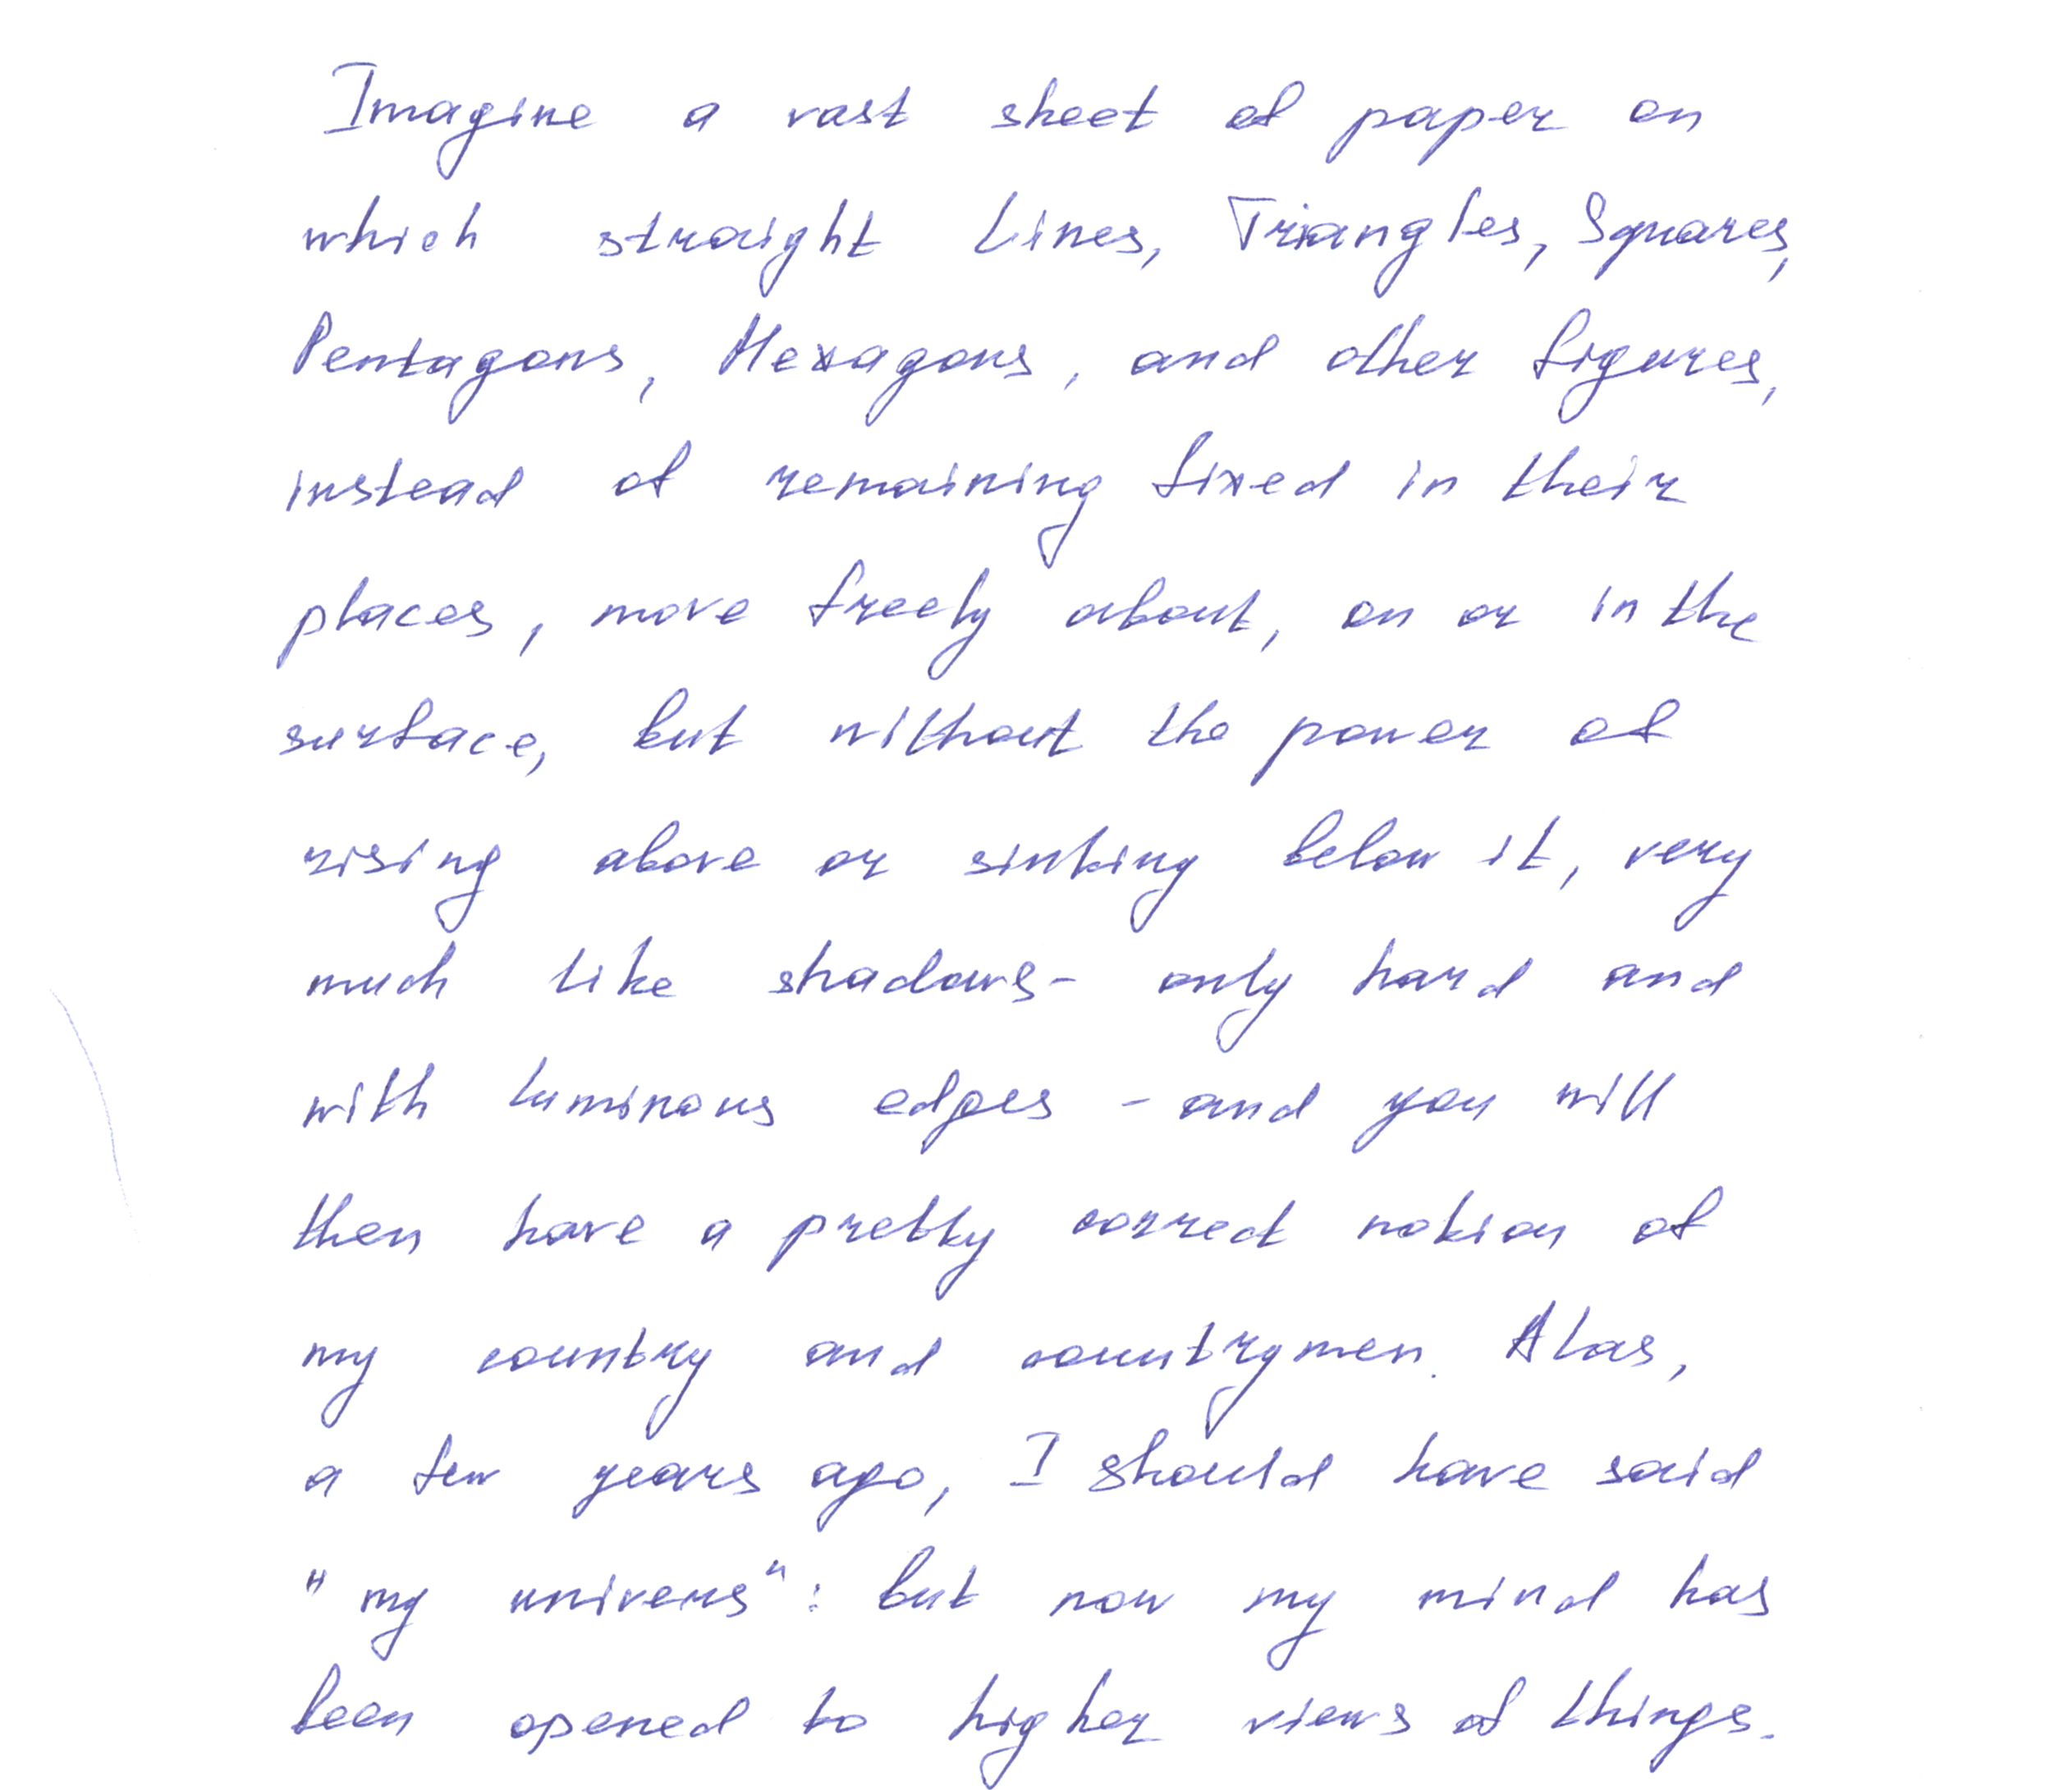 Imagine a vast sheet of paper on
which straight Lines, Triangles, Squares,
Pentagons, Hexagons, and other figures,
instead of remaining fixed in their
places, move freely about, on or in the
surface, but without the power of
rising above or sinking below it, very
much like shadows - only hard and
with luminous edges - and you will
then have a pretty correct notion of
my country and countrymen. Alas,
a few years ago, I should have said
"my univers": but now my mind has
been opened to higher views of things.